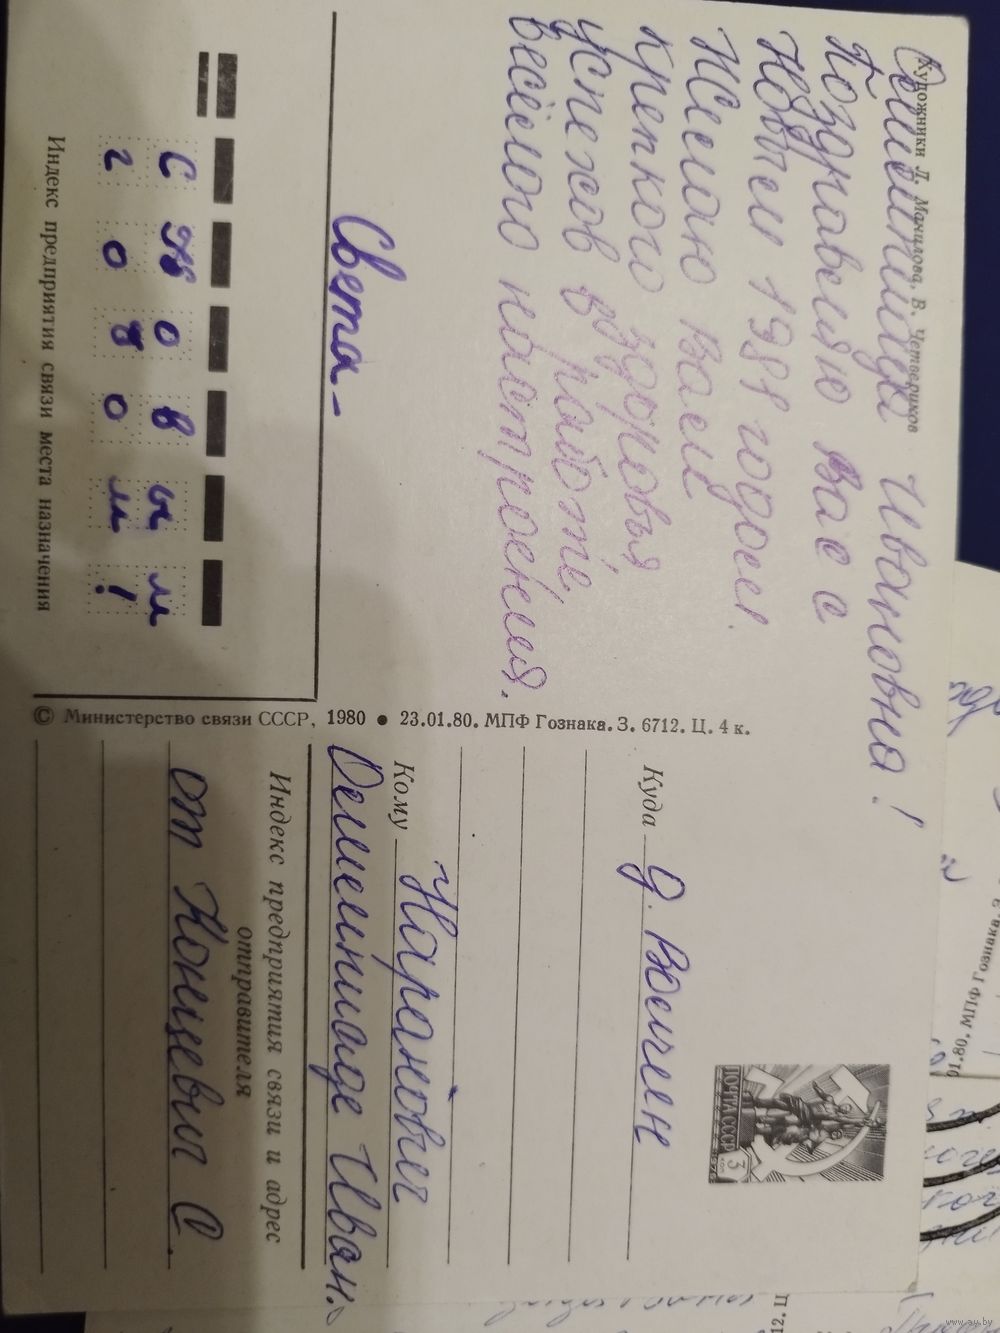 Художники Л. Манилова, В. Четвериков
Олимпиада Ивановна!
Поздравляю Вас с
Новым 1981 годом!
Желаю Вам
крепкого здоровья
успехов в работе,
весёлого настроения.
Света-
С Но в ы м
г о д о м !
Индекс предприятия связи места назначения
© Министерство связи СССР, 1980 ● 23.01.80. МПФ Гознака. З. 6712. Ц. 4 к.
ПОЧТА СССР
3
коп
Куда д.
Кому
Олимпиаде Иван.
Индекс предприятия связи и адрес
отправителя
от С.
01.80. МПФ Гознака З.
12. Ц
www.ay.by